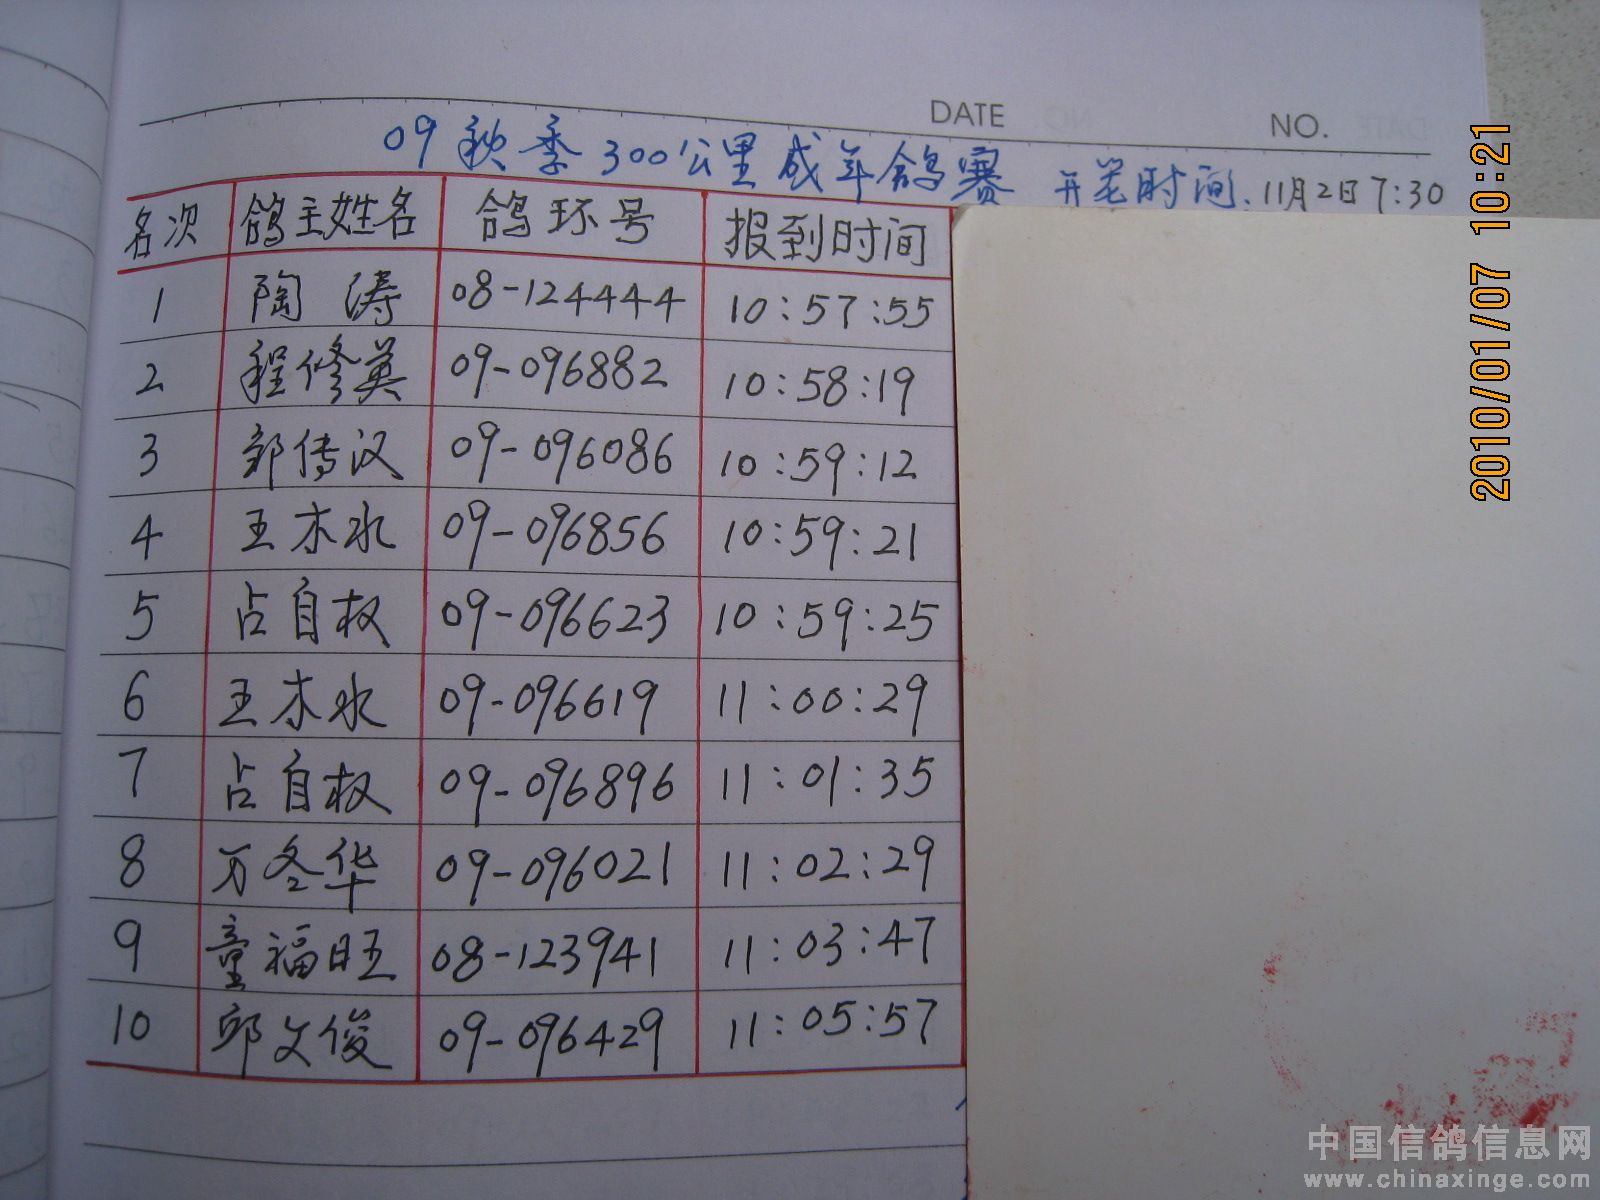 DATE NO.
09秋季300公里成年鸽赛 开笼时间.11月2日7:30
名次 鸽主姓名 鸽环号 报到时间
1 陶涛 08-124444 10:57:55
2 程修英 09-096882 10:58:19
3 郭传汉 09-096086 10:59:12
4 王木水 09-096856 10:59:21
5 占自权 09-096623 10:59:25
6 王木水 09-096619 11:00:29
7 占自权 09-096896 11:01:35
8 万冬华 09-096021 11:02:29
9 童福旺 08-123941 11:03:47
10 邱文俊 09-096429 11:05:57
2010/01/07 10:21
中国信鸽信息网
www.chinaxinge.com